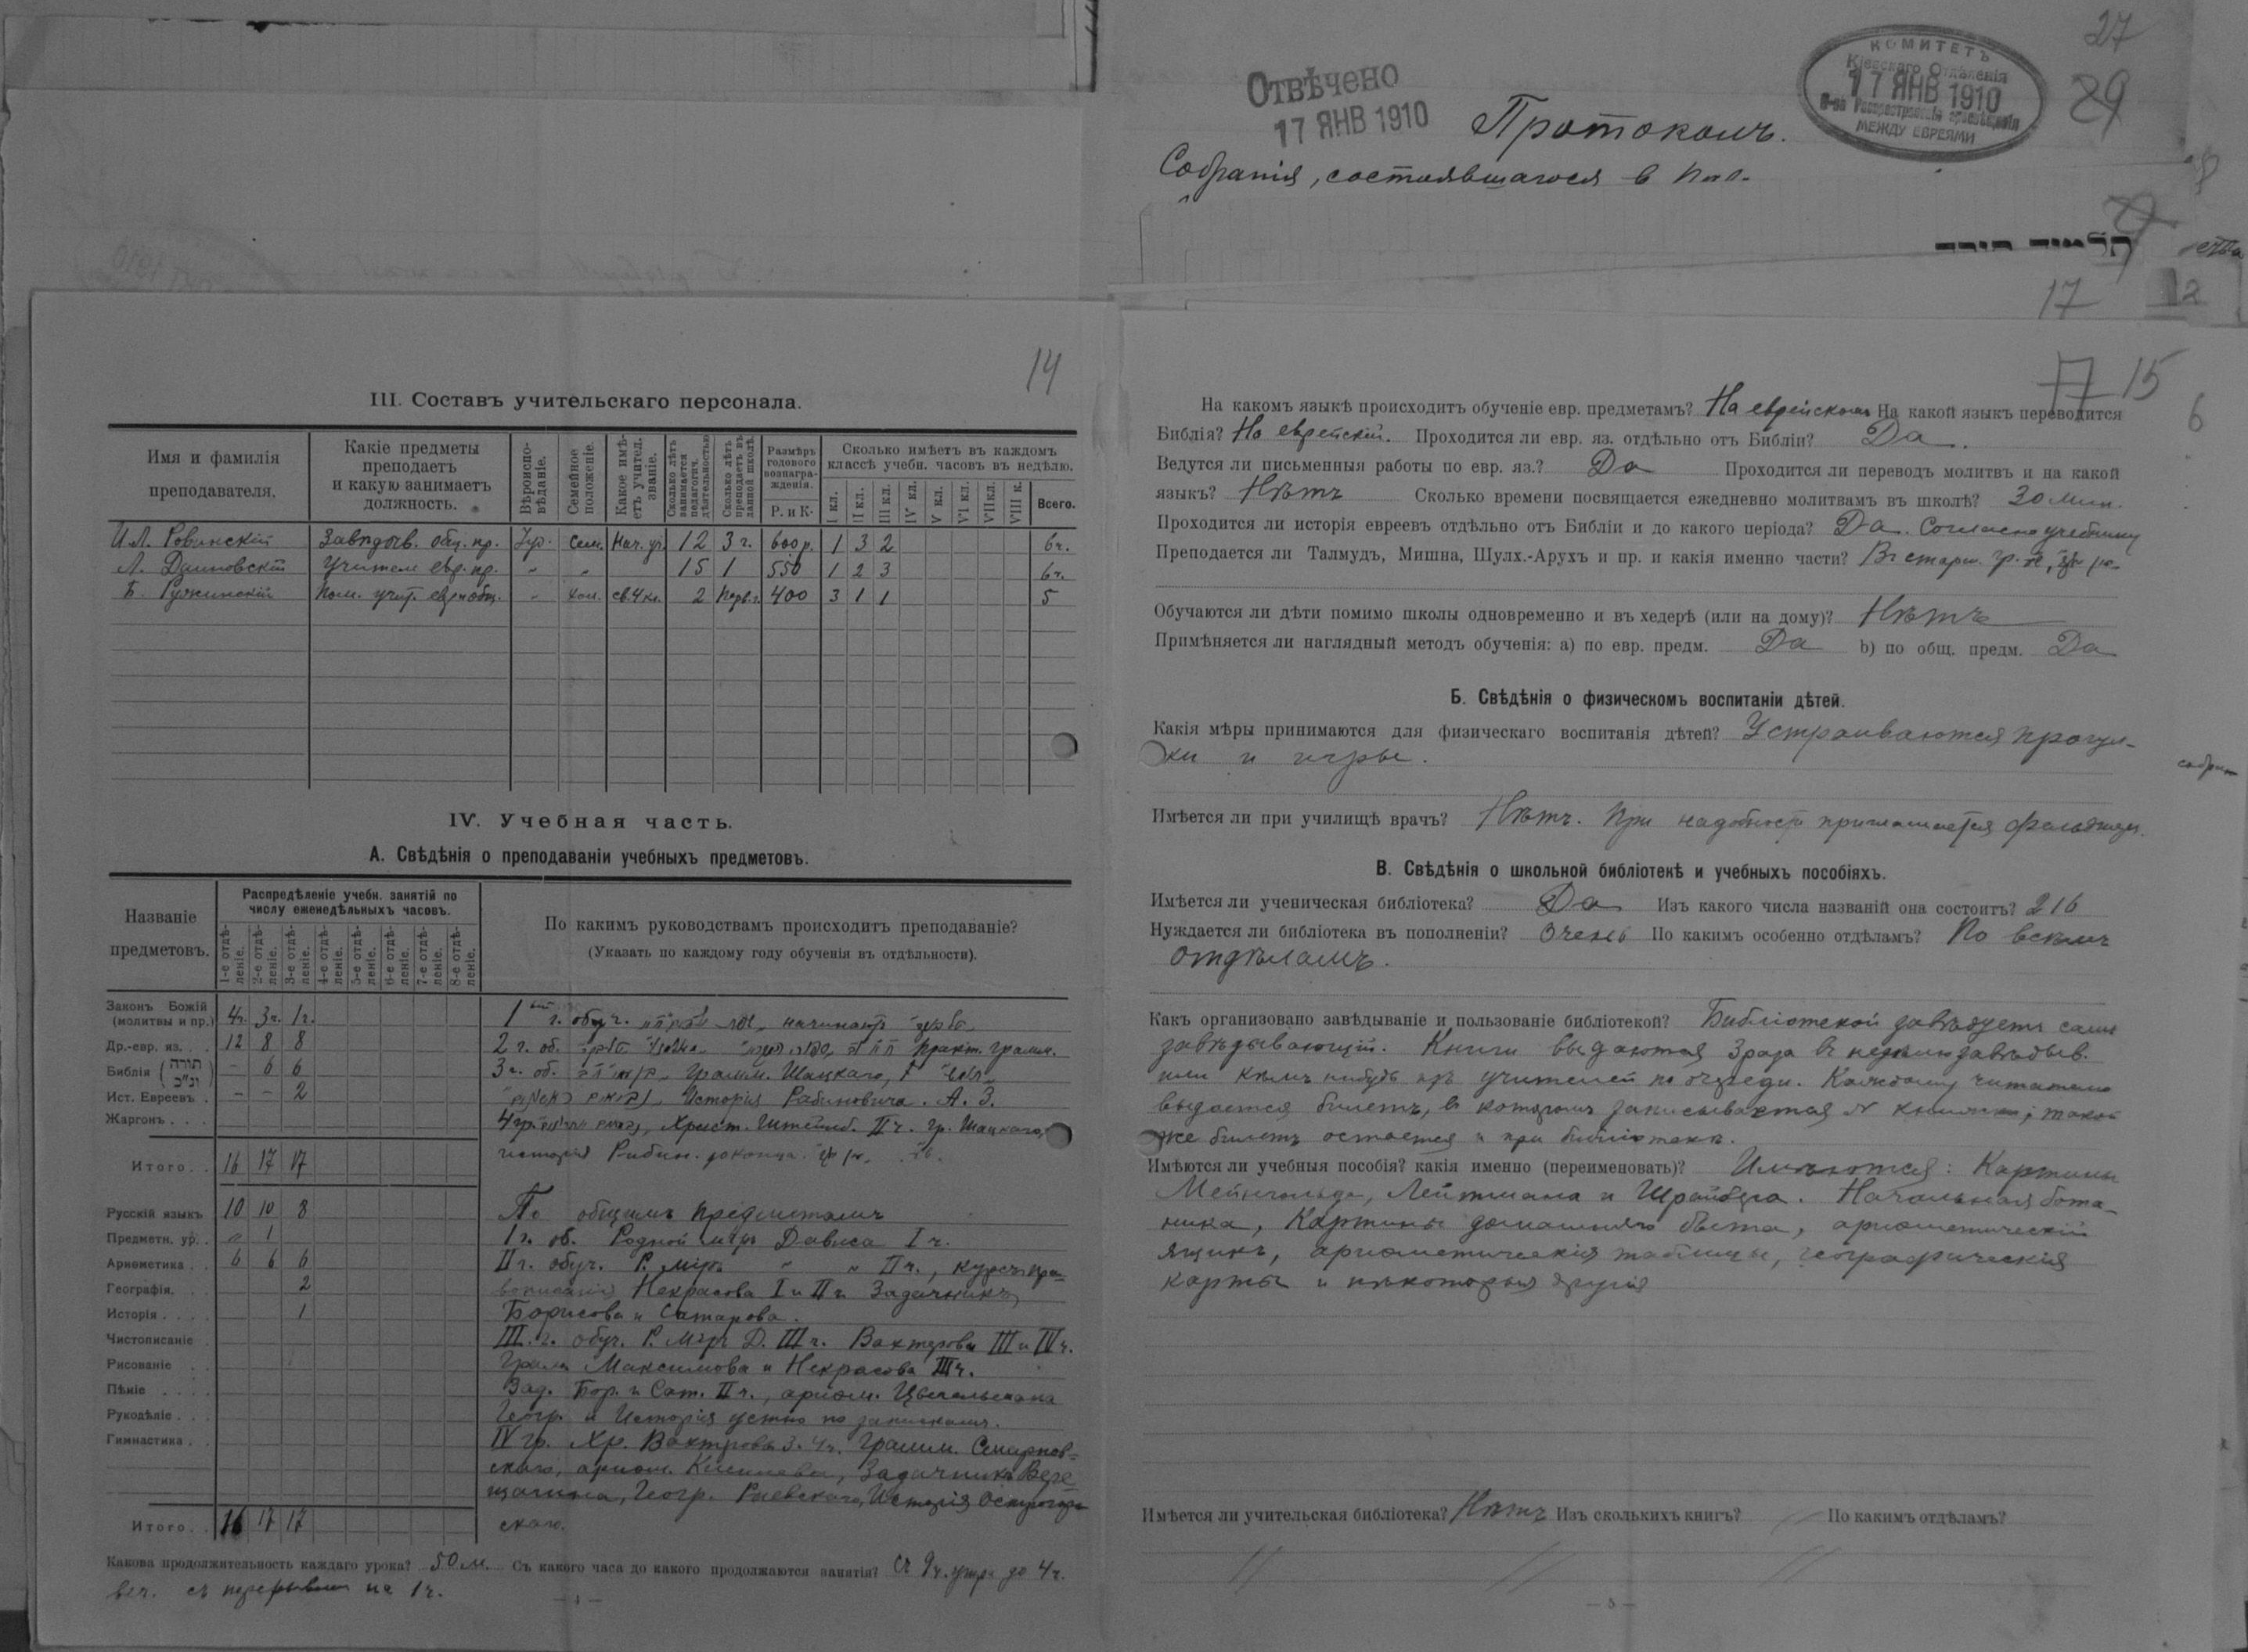 27
29
Отвѣчено
17 ЯНВ 1910
КОМИТЕТЪ
Кіевскаго Отдѣленія
17 ЯНВ 1910
МЕЖДУ ЕВРЕЯМИ
Протоколъ.
Собранія, состоявшагося в
17
12
14
III. Составъ учительскаго персонала.
Имя и фамилія преподавателя.
Какіе предметы преподаетъ и какую занимаетъ должность.
Вѣроисповѣданіе.
Семейное положеніе.
Какое имѣетъ учител. званіе.
Сколько лѣтъ занимается педагогич. дѣятельностью
Сколько лѣтъ преподаетъ въ данной школѣ.
Размѣръ годового вознагражденія.
Р. и К.
Сколько имѣетъ въ каждомъ классѣ учебн. часовъ въ недѣлю.
I кл. II кл. III кл. IV кл. V кл. VI кл. VII кл. VIII к. Всего.
И.Л. Ровинскій Завѣдыв. общ. пр. Іуд. Сем. Нач. уч. 12 3 г. 600 р. 1 3 2 6ч.
Л. Учитель евр. пр. „ „ 15 1 550 1 2 3 6ч.
Б. Ружинскій Пом. учит. евр и общ. „ Хол. св. 4 кл. 2 400 3 1 1 5
IV. Учебная часть.
А. Свѣдѣнія о преподаваніи учебныхъ предметовъ.
Названіе предметовъ.
Распредѣленіе учебн. занятій по числу еженедѣльныхъ часовъ.
1-е отдѣленіе. 2-е отдѣленіе. 3-е отдѣленіе. 4-е отдѣленіе. 5-е отдѣленіе. 6-е отдѣленіе. 7-е отдѣленіе. 8-е отдѣленіе.
По какимъ руководствамъ происходитъ преподаваніе?
(Указать по каждому году обученія въ отдѣльности).
Законъ Божій (молитвы и пр.) 4ч. 3ч. 1ч.
1 г. обуч. начинают
Др.-евр. яз. . . 12 8 8
2 г. об. практ. грамм.
Библія (תורה ונ"כ) – 6 6
3 г. об. грамм. Шацкаго,
Ист. Евреевъ . – – 2
Исторія Рабиновича. А. З.
Жаргонъ . . .
4 гр. Хрест. II ч. гр. Шацкаго,
Итого . . 16 17 17
исторія Рабин. до конца.
Русскій языкъ 10 10 8
По общимъ предметамъ
Предметн. ур. . „ 1
1 г. об. Родной міръ Дависа I ч.
Ариѳметика . . 6 6 6
II г. обуч. Р. міръ „ „ II ч., курсъ пра-
Географія. . . 2
вописанія Некрасова I и II ч. Задачникъ
Исторія . . . . 1
Борисова и Сатарова.
Чистописаніе .
III г. обуч. Р. міръ Д. III ч. Вахтерова III и IV ч.
Рисованіе . .
Грам. Максимова и Некрасова III ч.
Пѣніе . . . .
Зад. Бор. и Сат. II ч., ариѳм.
Рукодѣліе . . .
Геогр. и Исторія устно по запискамъ.
Гимнастика . .
IV гр. Хр. Вахтерова 3. 4 ч. Грамм. Смирнов-
скаго, ариѳм. Киселева, Задачникъ Вере-
щагина, Геогр. Раевскаго, Исторія Острогор-
Итого . . 16 17 17
скаго.
Какова продолжительность каждаго урока? 50 м. Съ какого часа до какого продолжаются занятія? Съ 9 ч. утра до 4 ч.
веч. съ перерывом на 1 ч.
17 15
6
На какомъ языкѣ происходитъ обученіе евр. предметамъ? На еврейскомъ На какой языкъ переводится
Библія? На еврейскій. Проходится ли евр. яз. отдѣльно отъ Библіи? Да.
Ведутся ли письменныя работы по евр. яз.? Да Проходится ли переводъ молитвъ и на какой
языкъ? Нѣтъ Сколько времени посвящается ежедневно молитвамъ въ школѣ? 30 мин.
Проходится ли исторія евреевъ отдѣльно отъ Библіи и до какого періода? Да. Согласно учебнику
Преподается ли Талмудъ, Мишна, Шулх.-Арухъ и пр. и какія именно части? Въ старш. гр.
Обучаются ли дѣти помимо школы одновременно и въ хедерѣ (или на дому)? Нѣтъ
Примѣняется ли наглядный методъ обученія: а) по евр. предм. Да b) по общ. предм. Да
Б. Свѣдѣнія о физическомъ воспитаніи дѣтей.
Какія мѣры принимаются для физическаго воспитанія дѣтей? Устраиваются прогул-
ки и игры.
Имѣется ли при училищѣ врачъ? Нѣтъ. При надобности приглашается фельдшер.
В. Свѣдѣнія о школьной библіотекѣ и учебныхъ пособіяхъ.
Имѣется ли ученическая библіотека? Да Изъ какого числа названій она состоитъ? 216
Нуждается ли библіотека въ пополненіи? Очень По какимъ особенно отдѣламъ? По всѣмъ
отдѣламъ.
Какъ организовано завѣдываніе и пользованіе библіотекой? Библіотекой завѣдуетъ самъ
завѣдывающій. Книги выдаются 3 раза в недѣлю завѣдыв.
или кѣмъ нибудь изъ учителей по очереди. Каждому читателю
выдается билетъ, в которомъ записывается № книжки; такой
же билетъ остается и при библіотекѣ.
Имѣются ли учебныя пособія? какія именно (переименовать)? Имѣются: Картины
Мейнгольда, Лейтмана и Шрайбера. Начальная бота-
ника, Картины домашняго быта, ариѳметическій
ящикъ, ариѳметическія таблицы, географическія
карты и нѣкоторыя другія
Имѣется ли учительская библіотека? Нѣтъ Изъ сколькихъ книгъ? По какимъ отдѣламъ?